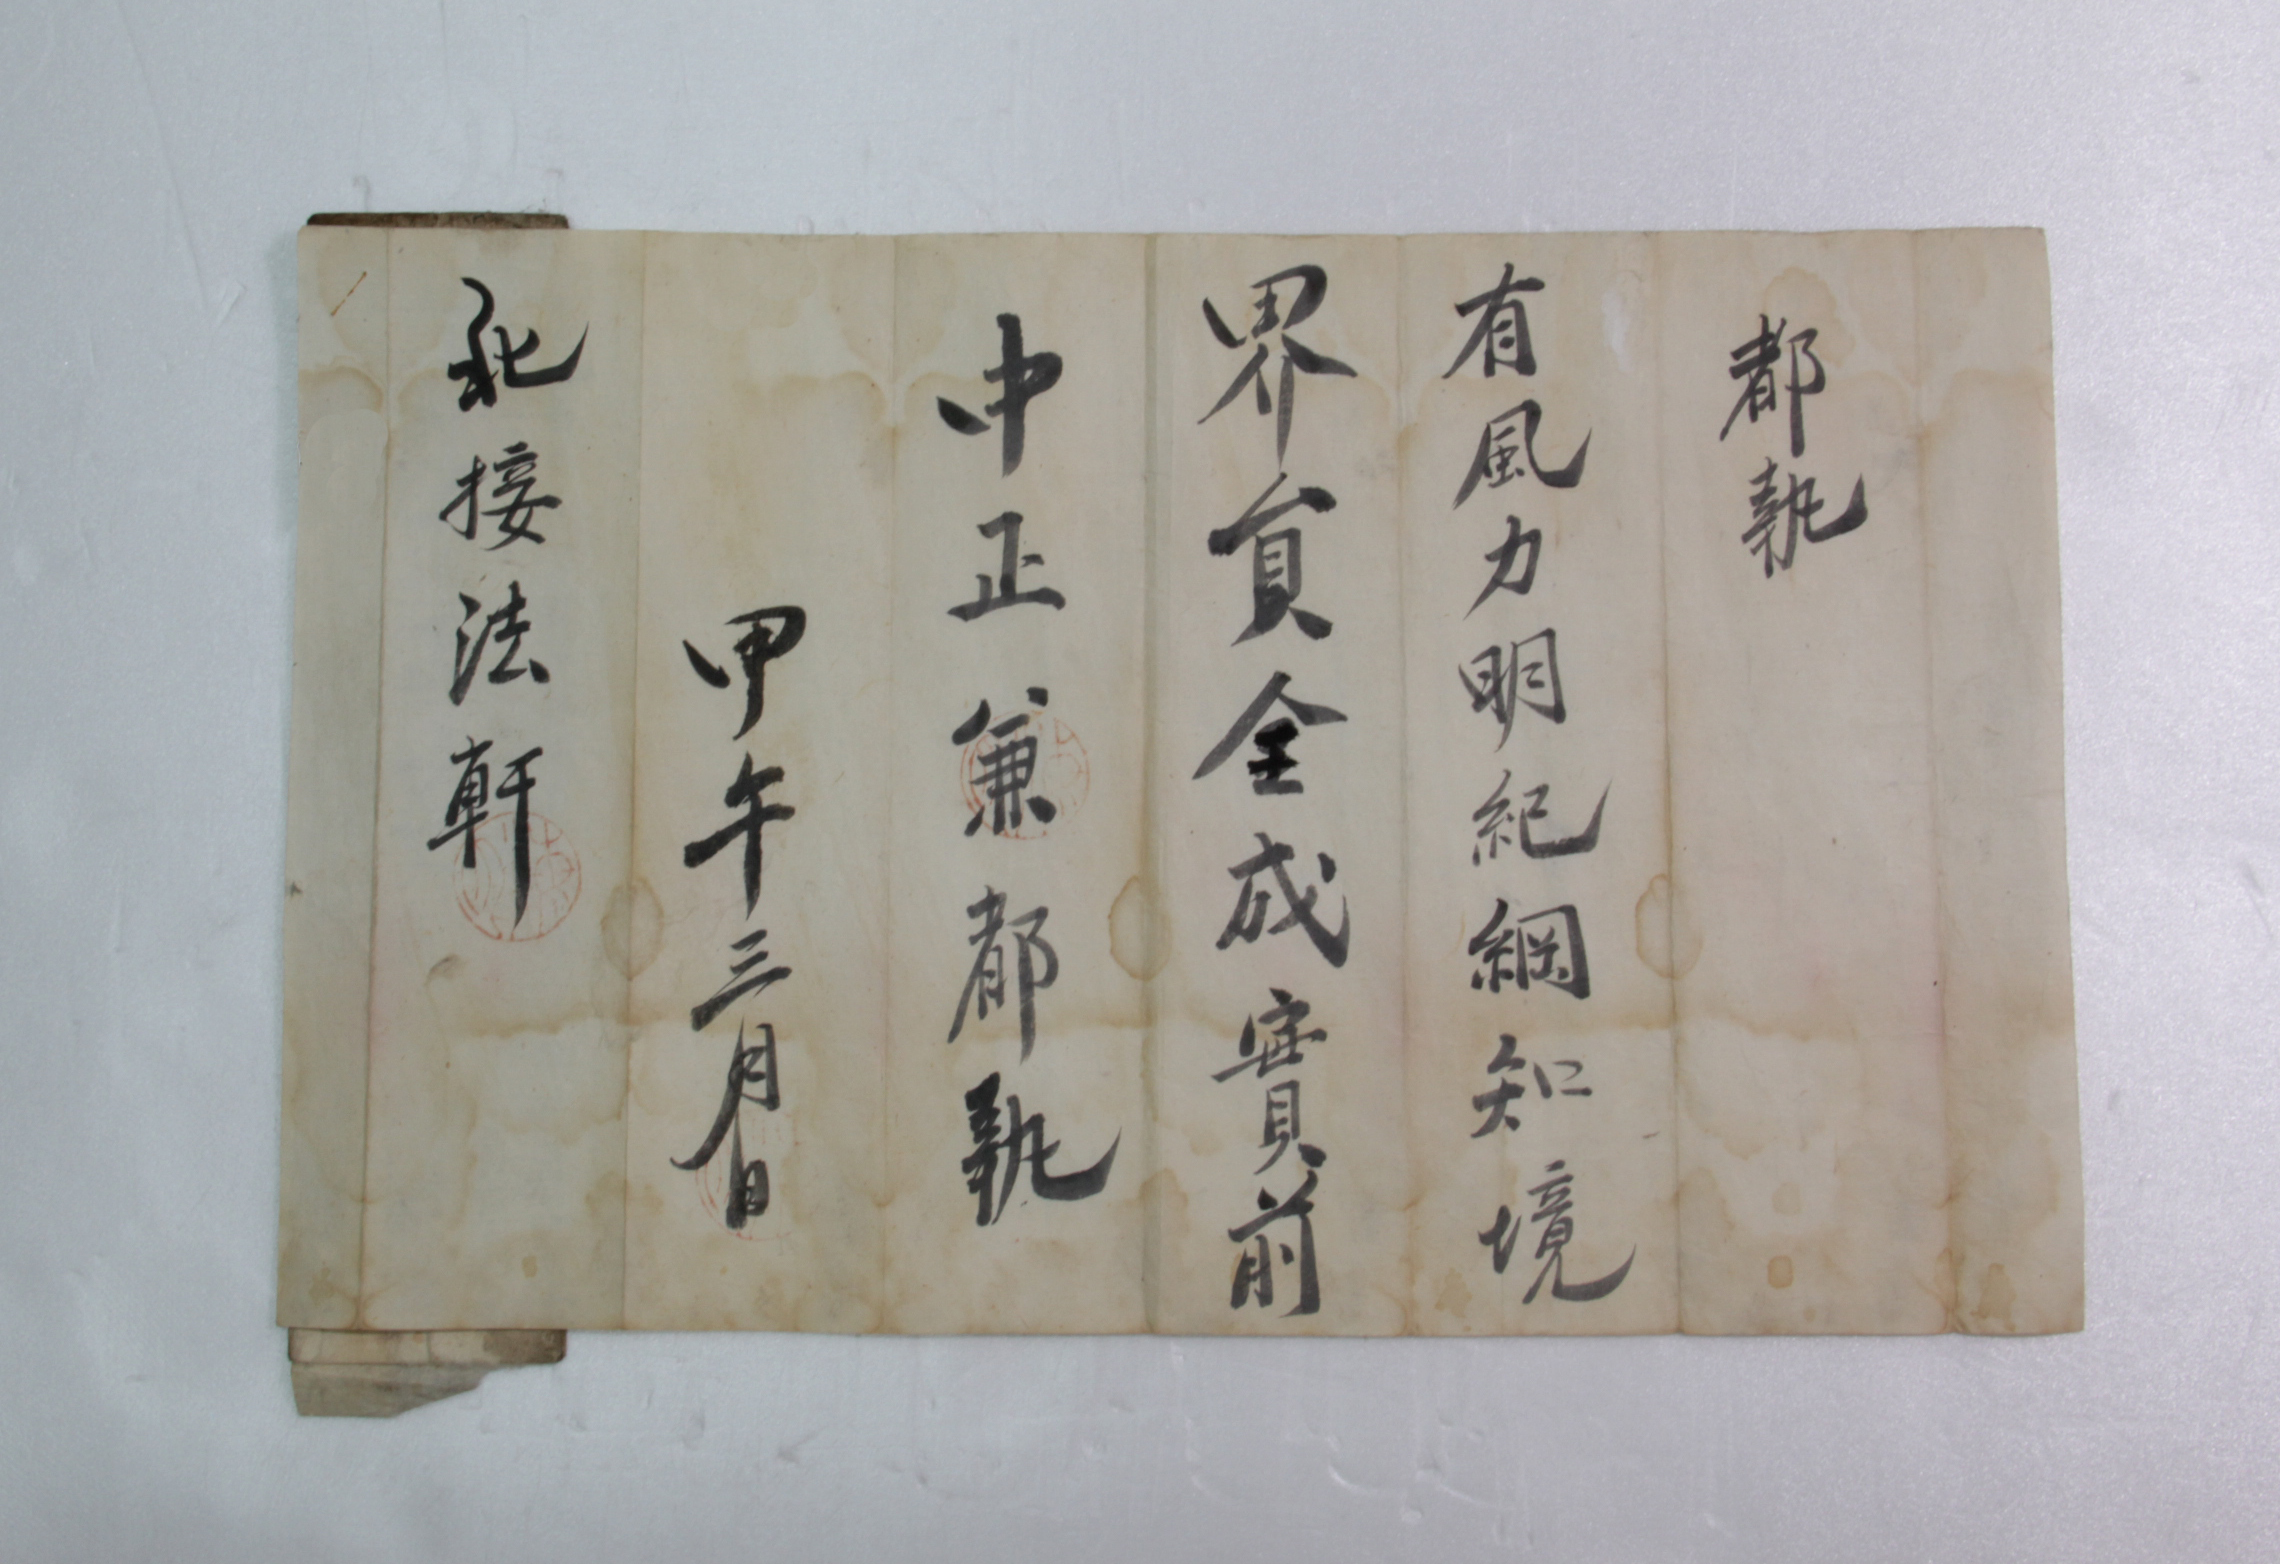 都執
有風力明紀綱知境
界貟全成實前
中正兼都執
甲午三月日
北接法軒